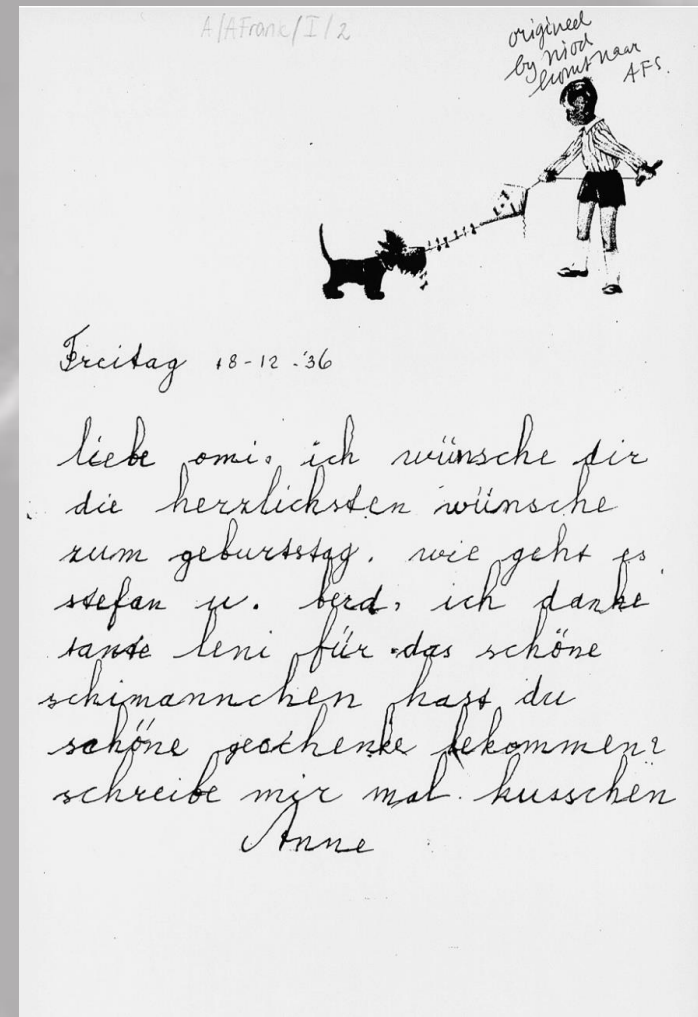 A/AFrank/I/2
origineel
by niod
komt naar
AFS.
Freitag 18-12-'36
liebe omi. ich wünsche dir
die herzlichsten wünsche
zum geburtstag. wie geht es
stefan u. berd. ich danke
tante leni für das schöne
schimannchen hast du
schöne geschenke bekommen?
schreibe mir mal. kusschen
Anne